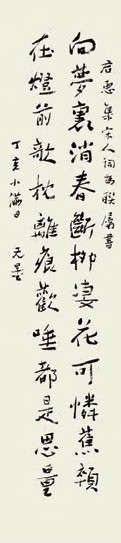 君惠集宋人詞為聯屬書
向夢裏消春斷柳淒花可憐蕉頰
在燈前欹枕離痕歡唾都是思量
丁亥小滿日 元墨